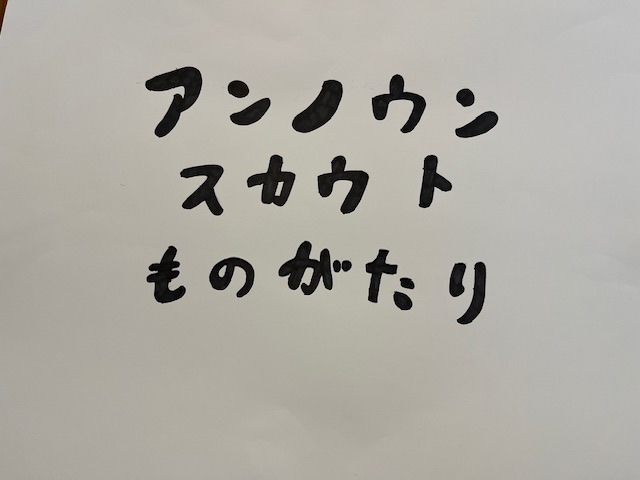 アンノウン
スカウト
ものがたり